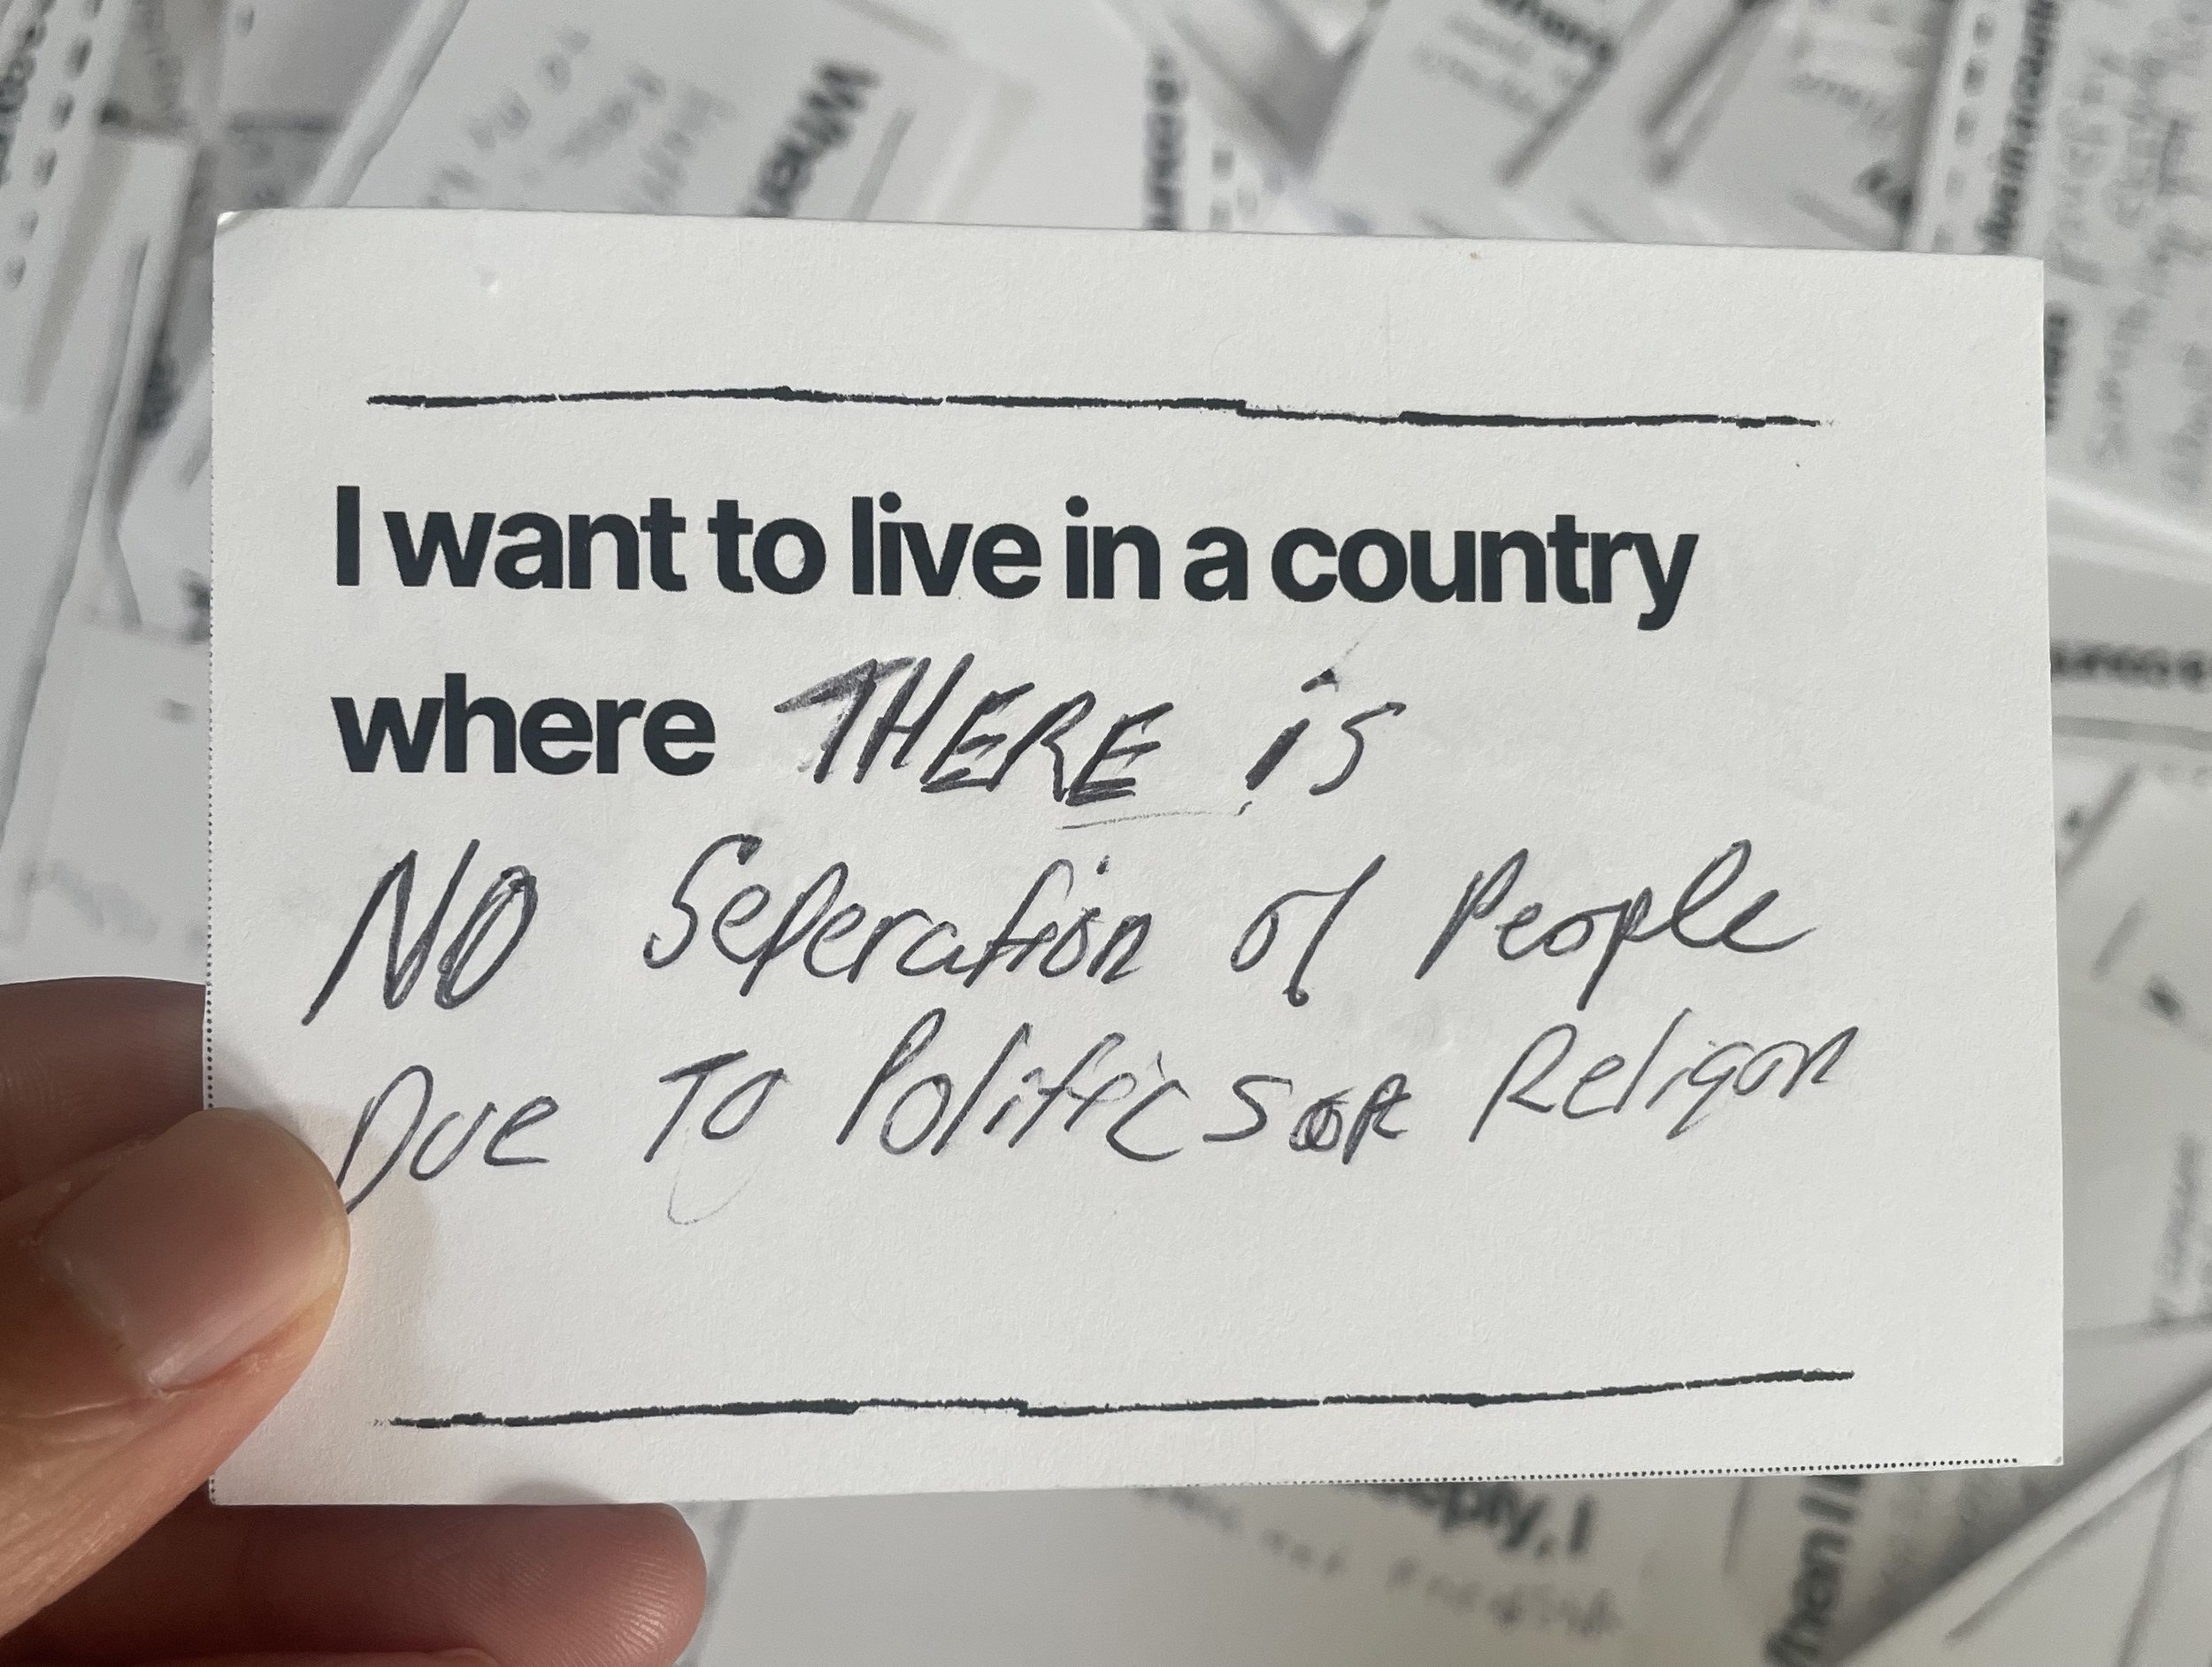 I want to live in a country
where THERE is
NO Seperation of People
Due To Politics or Religon